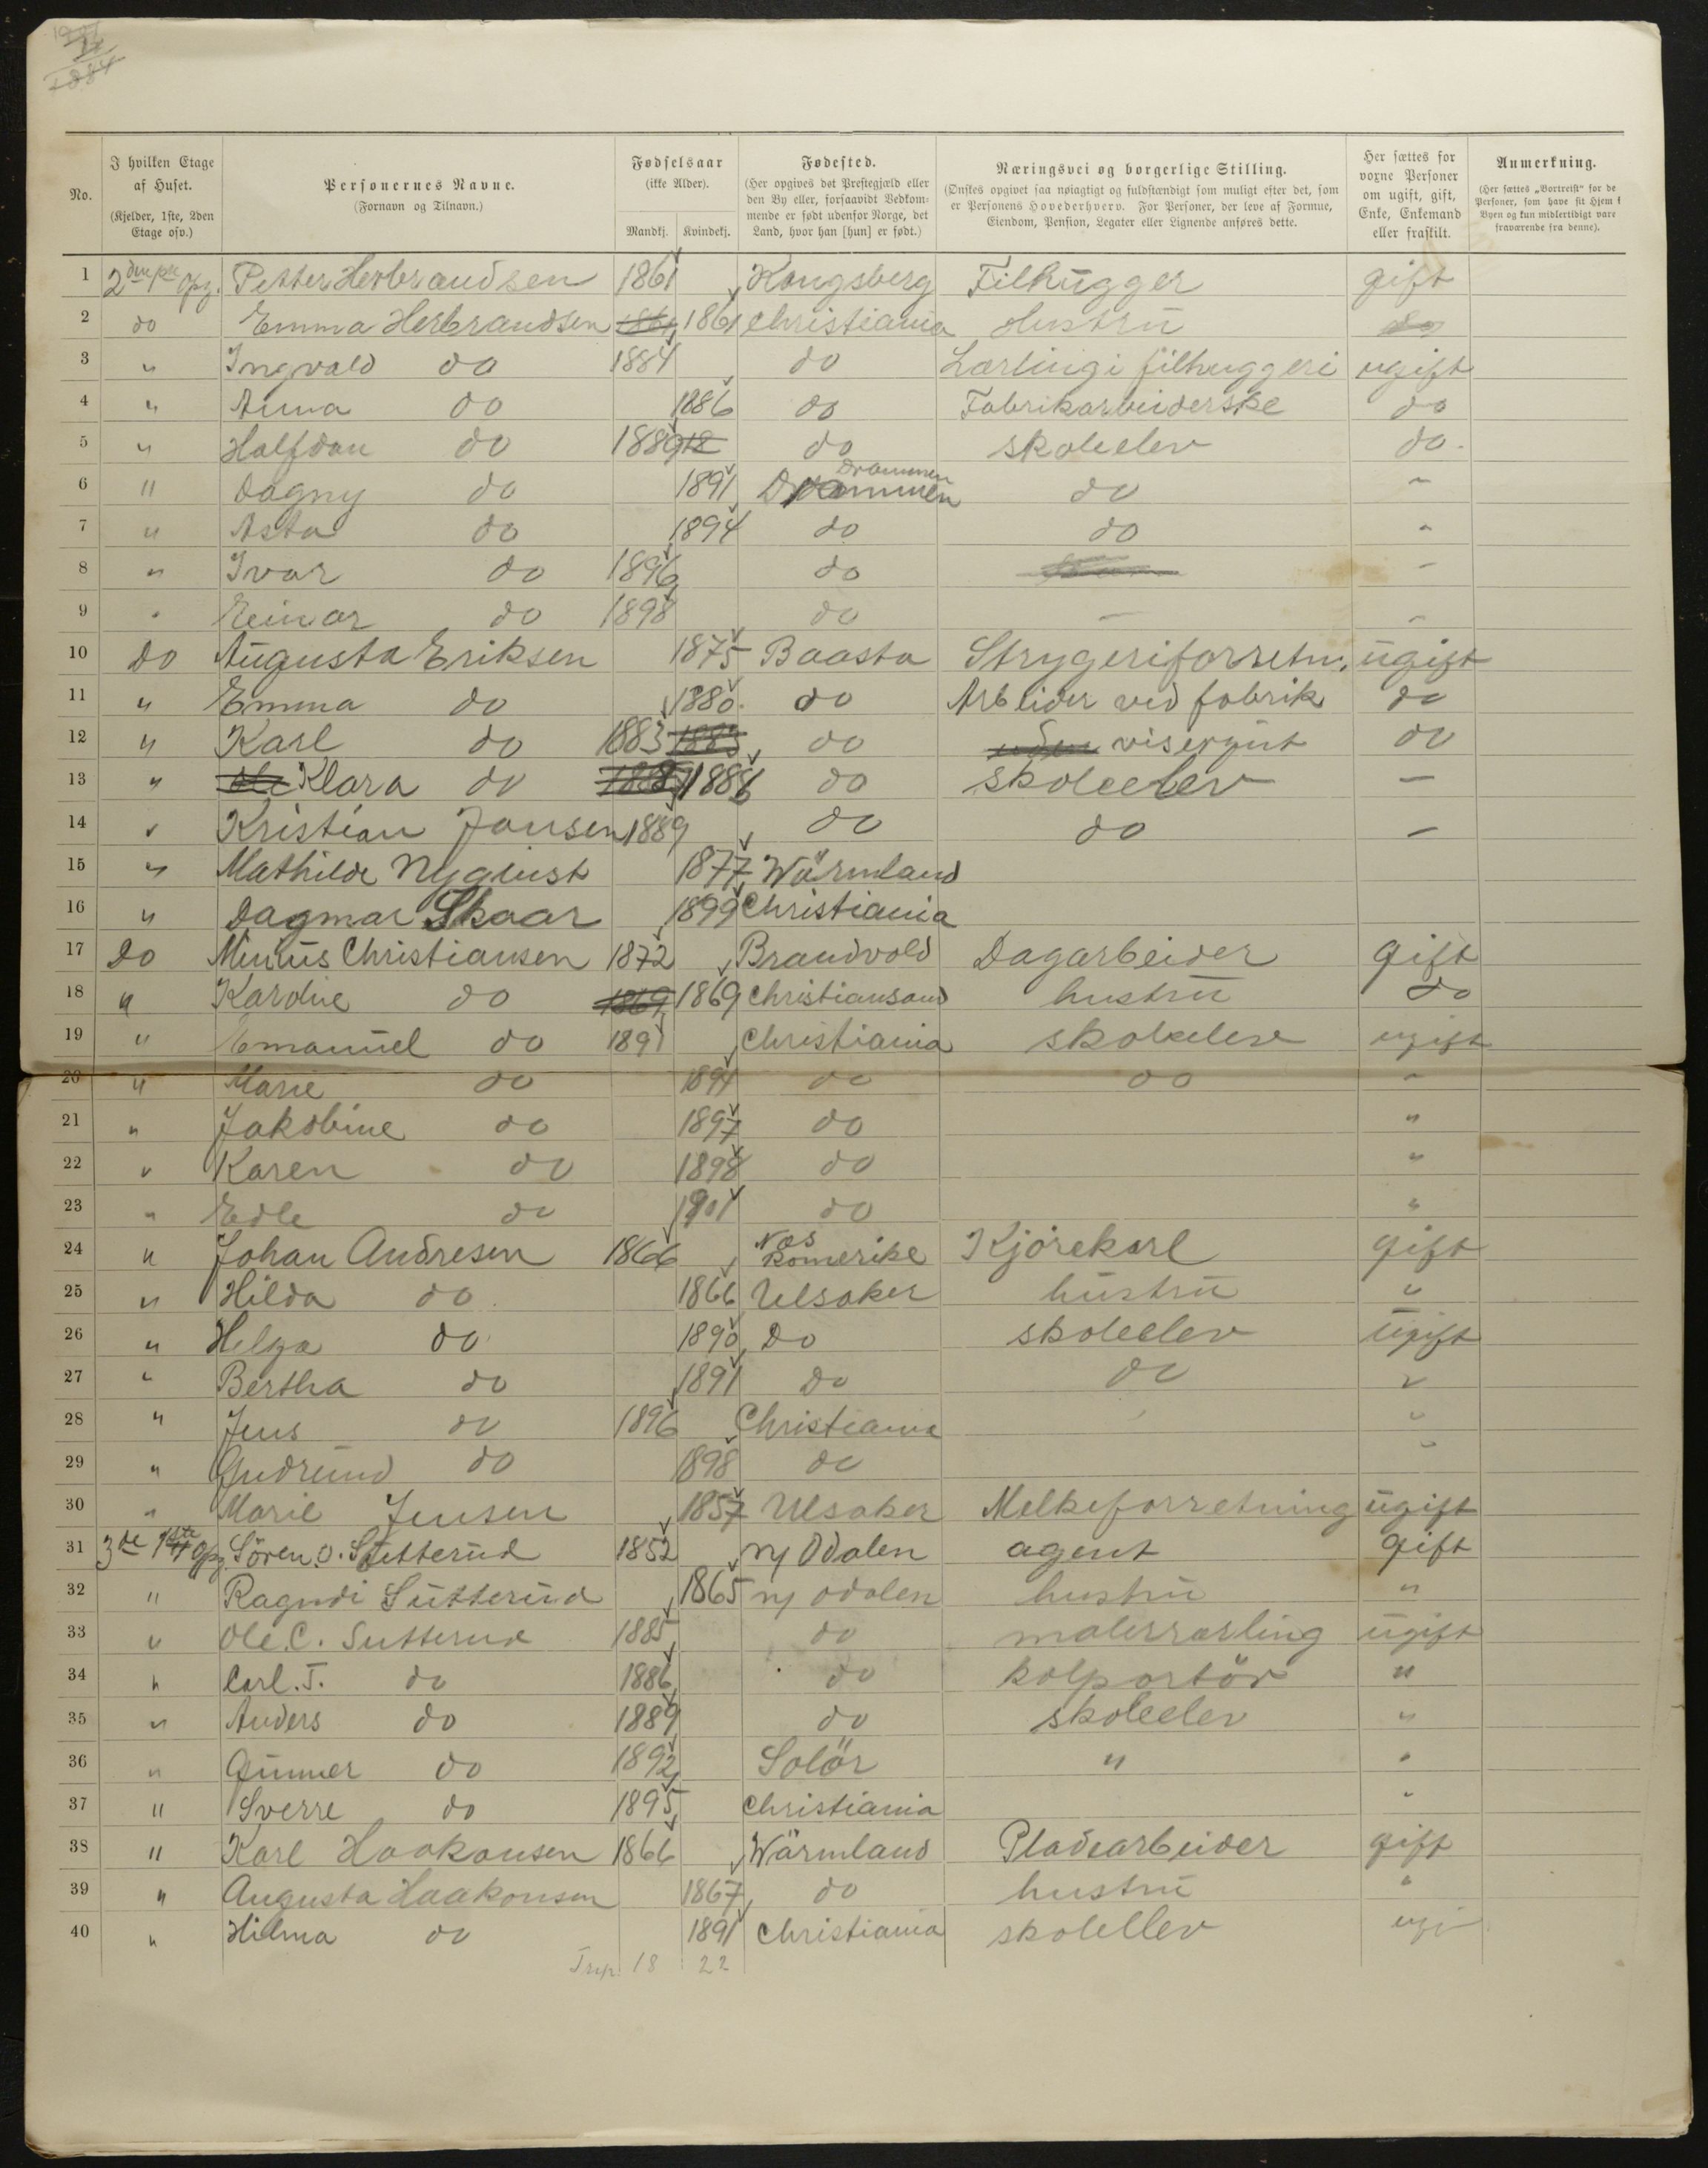 No.
I hvilken Etage af Huset. (Kjelder, 1ste, 2den Etage osv.)
Personernes Navne. (Fornavn og Tilnavn.)
Fødselsaar (ikke Alder). Mandkj. Kvindekj.
Fødested. (Her opgives det Prestegjæld eller den By eller, forsaavidt Vedkommende er født udenfor Norge, det Land, hvor han [hun] er født.)
Næringsvei og borgerlige Stilling. (Ønskes opgivet saa nøiagtigt og fuldstændigt som muligt efter det, som er Personens Hovederhverv. For Personer, der leve af Formue, Eiendom, Pension, Legater eller Lignende anføres dette.
Her sættes for voxne Personer om ugift, gift, Enke, Enkemand eller fraskilt.
Anmerkning. (Her sættes „Bortreist“ for de Personer, som have sit Hjem i Byen og kun midlertidigt være fraværende fra denne).
1 Petter Herbrandsen 1861 Kongsberg Filhugger gift
2 do Emma Herbrandsen 1861 1861 Christiania Hustru do
3 " Ingvald do 1884 do Lærling i filhuggeri ugift
4 " Anna do 1886 do Fabrikarbeiderske do
5 " Halfdan do 1889 18 do skoleelev do.
6 " Dagny do 1891 Drammen Drammen do "
7 " Asta do 1894 do do "
8 " Ivar do 1896 do -
9 " Einar do 1898 do - -
10 Do Augusta Eriksen 1875 Baasta Strygeriforretn. ugift
11 " Emma do 1880 do Arbeider ved fabrik do
12 " Karl do 1883 1883 do uden visergut do
13 " Ole Klara do 1886 do skoleelev -
14 " Kristian Jansen 1889 do do -
15 " Mathilde Nyqvist 1877 Wärmland
16 " Dagmar Skaar 1899 Christiania
17 Do Minius Christiansen 1872 Brandvold Dagarbeider gift
18 " Kardine do 1869 1869 Christiansand hustru do
19 " Emanuel do 1891 Christiania skoleelev ugift
20 " Marie do 1894 do do "
21 " Jakobine do 1897 do "
22 " Karen do 1898 do "
23 " Edle do 1901 do "
24 " Johan Andresen 1866 Næs Romerike Kjørekarl gift
25 " Hilda do 1866 Ulsaker hustru "
26 " Helga do 1890 Do skoleelev ugift
27 " Bertha do 1891 Do do "
28 " Jens do 1896 Christiania "
29 " Gudrund do 1898 do "
30 " Marie Jensen 1857 Ulsaker Melkeforretning ugift
31 Søren O. Sütterud 1852 N Odalen agent gift
32 " Ragndi Sütterud 1865 N Odalen hustru "
33 " Ole C. Sutterud 1885 do malerlærling ugift
34 " Carl. T. do 1886 do kolportör "
35 " Anders do 1889 do skoleelev "
36 " Gunner do 1892 Solör " "
37 " Sverre do 1895 Christiania "
38 " Karl Haakonsen 1866 Wärmland Pladearbeider gift
39 " Augusta Haakonsen 1867 do hustru "
40 " Hilma do 1891 Christiania skoleelev
18 22